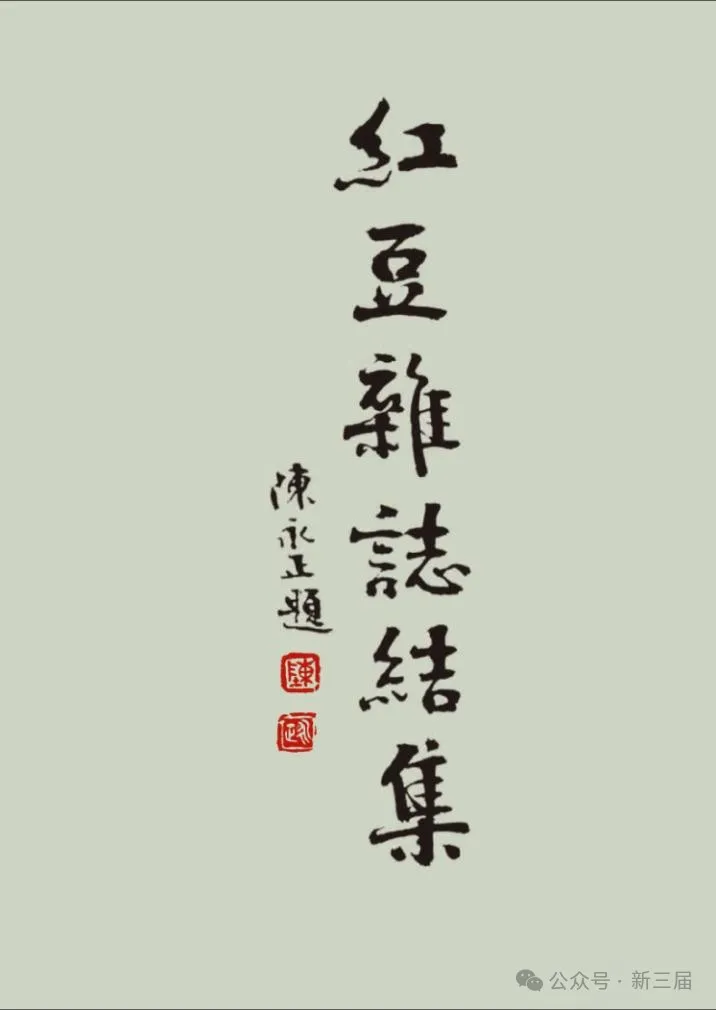 紅豆雜誌結集
陳永正題
陳
公众号·新三届